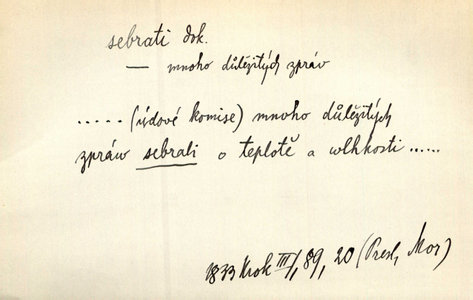 sebrati dok.
— mnoho důležitých zpráv
..... (údové komise) mnoho důležitých
zpráw sebrali o teplotě a wlhkosti ......
1833 Krok III/1, 89, 20 (Presl, Mor)